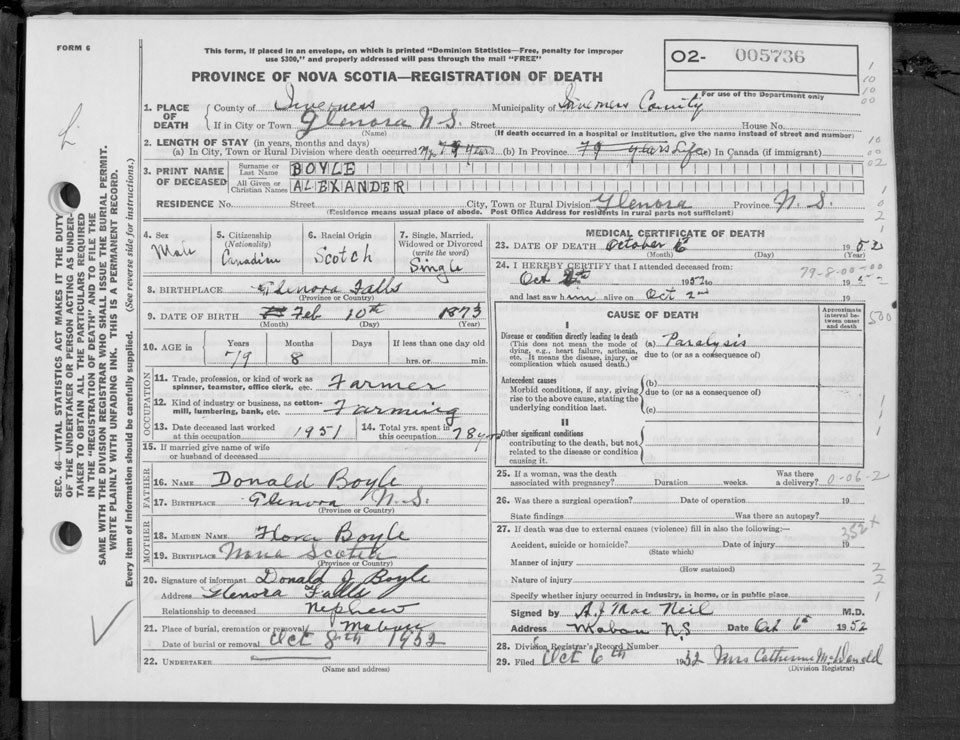 FORM 6
This form, if placed in an envelope, on which is printed "Dominion Statistics—Free, penalty for improper
use $300," and properly addressed will pass through the mail "FREE"
PROVINCE OF NOVA SCOTIA—REGISTRATION OF DEATH
O2- 005736
For use of the Department only
1. PLACE OF DEATH
County of Inverness Municipality of Inverness County
If in City or Town Glenora N S. Street House No.
(Name) (If death occurred in a hospital or institution, give the name instead of street and number)
2. LENGTH OF STAY (in years, months and days)
(a) In City, Town or Rural Division where death occurred 79 years (b) In Province 79 years Life (c) In Canada (if immigrant)
3. PRINT NAME OF DECEASED
Surname or Last Name BOYLE
All Given or Christian Names ALEXANDER
RESIDENCE No. Street City, Town or Rural Division Glenora Province N. S.
(Residence means usual place of abode. Post Office Address for residents in rural parts not sufficient)
4. Sex Male
5. Citizenship (Nationality) Canadian
6. Racial Origin Scotch
7. Single, Married, Widowed or Divorced (write the word) Single
8. BIRTHPLACE Glenora Falls
(Province or Country)
9. DATE OF BIRTH Feb 10th 1873
(Month) (Day) (Year)
10. AGE in Years Months Days If less than one day old
79 8 hrs. or min.
OCCUPATION
11. Trade, profession, or kind of work as spinner, teamster, office clerk, etc. Farmer
12. Kind of industry or business, as cotton-mill, lumbering, bank, etc. Farming
13. Date deceased last worked at this occupation 1951
14. Total yrs. spent in this occupation 78 yrs
15. If married give name of wife or husband of deceased
FATHER
16. NAME Donald Boyle
17. BIRTHPLACE Glenora N. S.
(Province or Country)
MOTHER
18. MAIDEN NAME Flora Boyle
19. BIRTHPLACE Nova Scotia
(Province or Country)
20. Signature of informant Donald J Boyle
Address Glenora Falls
Relationship to deceased Nephew
21. Place of burial, cremation or removal Mabou
Date of burial or removal Oct 8th 1952
22. UNDERTAKER
(Name and address)
MEDICAL CERTIFICATE OF DEATH
23. DATE OF DEATH October 6 1952
(Month) (Day) (Year)
24. I HEREBY CERTIFY that I attended deceased from:
79-8-00-00
Oct 2nd 1952 to 19
and last saw him alive on Oct 2nd 19
CAUSE OF DEATH
Approximate interval between onset and death
500
I
Disease or condition directly leading to death
(This does not mean the mode of dying, e.g., heart failure, asthenia, etc. It means the disease, injury, or complication which caused death.)
(a) Paralysis
due to (or as a consequence of)
Antecedent causes
Morbid conditions, if any, giving rise to the above cause, stating the underlying condition last.
(b)
due to (or as a consequence of)
(c)
II
Other significant conditions
contributing to the death, but not related to the disease or condition causing it.
25. If a woman, was the death associated with pregnancy? Duration weeks. Was there a delivery? 0-06-2
26. Was there a surgical operation? Date of operation 19
State findings Was there an autopsy?
27. If death was due to external causes (violence) fill in also the following:—
352 x
Accident, suicide or homicide? Date of injury 19
(State which)
Manner of injury
(How sustained)
Nature of injury
Specify whether injury occurred in industry, in home, or in public place
Signed by A. J Mac Neil M.D.
Address Mabou N.S Date Oct 6th 1952
28. Division Registrar's Record Number
29. Filed Oct 6th 1952 Mrs Catherine McDonald
(Division Registrar)
SEC. 46—VITAL STATISTICS ACT MAKES IT THE DUTY
OF THE UNDERTAKER OR PERSON ACTING AS UNDER-
TAKER TO OBTAIN ALL THE PARTICULARS REQUIRED
IN THE "REGISTRATION OF DEATH" AND TO FILE THE
SAME WITH THE DIVISION REGISTRAR WHO SHALL ISSUE THE BURIAL PERMIT.
WRITE PLAINLY WITH UNFADING INK. THIS IS A PERMANENT RECORD.
Every item of information should be carefully supplied. (See reverse side for instructions.)